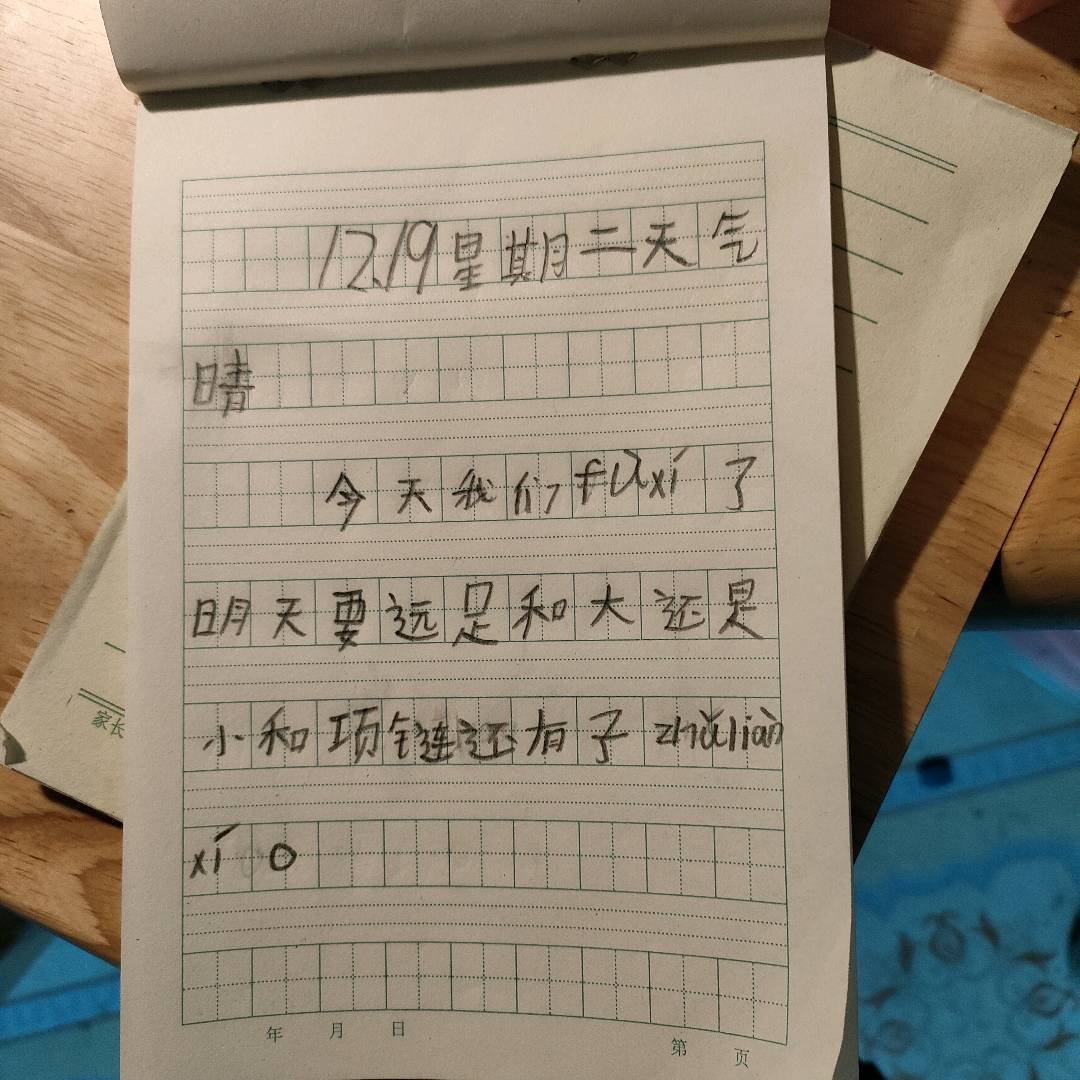 12.19星期二天气
晴
今天我们fùxí了
明天要远足和大还是
小和项链还有子zhǔliàn
xí。
年 月 日
第 页
家长